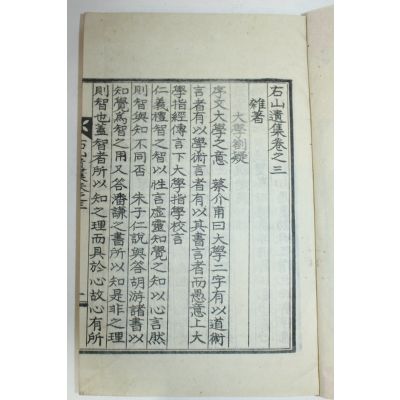 右山遺集卷之三
雜著
大學劄疑
序文大學之意 蔡介甫曰大學二字有以道術
言者有以學術言者有以其書言者而愚意上大
學指經傳言下大學指學校言
仁義禮智之智以性言虛靈知覺之知以心言然
則智與知不同否 朱子仁說與答胡游諸書以
知覺爲智之用又答潘謙之書所以知是非之理
則智也盖智者所以知之理而具於心故心有所
右山遺集卷之三